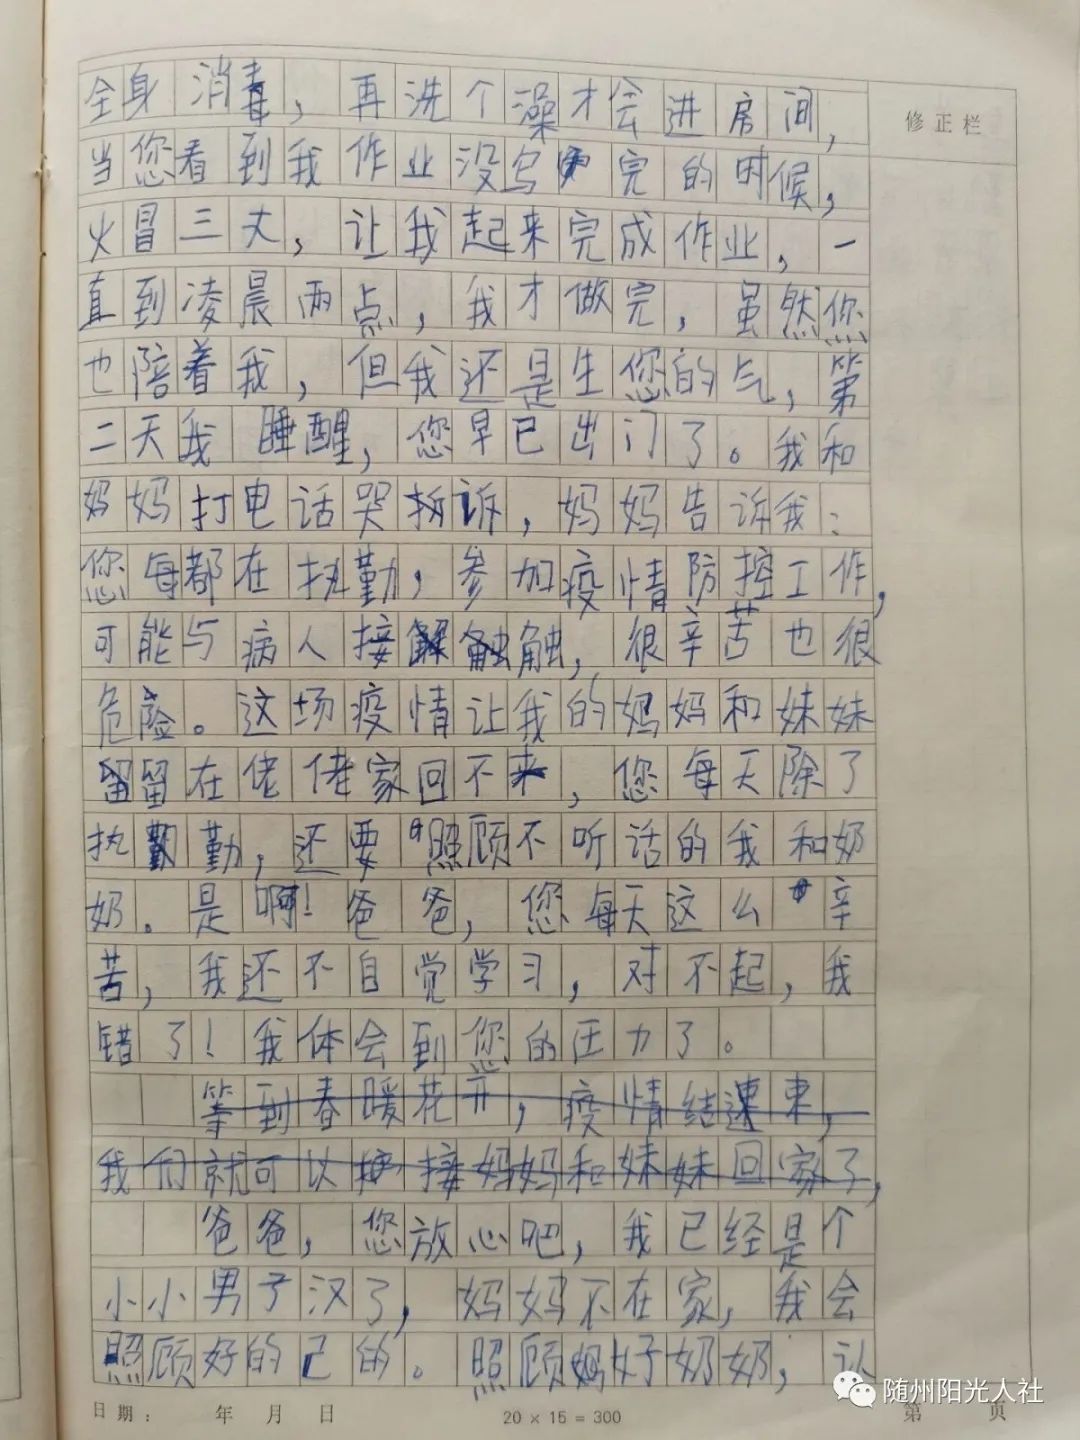 修正栏
全身消毒，再洗个澡才会进房间，
当您看到我作业没写完的时候，
火冒三丈，让我起来完成作业，一
直到凌晨两点，我才做完，虽然您
也陪着我，但我还是生您的气，第
二天我睡醒，您早已出门了。我和
妈妈打电话哭拆诉，妈妈告诉我：
您每都在执勤，参加疫情防控工作，
可能与病人接触，很辛苦也很
危险。这场疫情让我的妈妈和妹妹
留在佬佬家回不来，您每天除了
执勤，还要照顾不听话的我和奶
奶。是啊！爸爸，您每天这么辛
苦，我还不自觉学习，对不起，我
错了！我体会到您的压力了。
等到春暖花开，疫情结速束，
我们就可以接妈妈和妹妹回家了，
爸爸，您放心吧，我已经是个
小小男子汉了，妈妈不在家，我会
照顾好的己的。照顾好奶奶，认
日期： 年 月 日 20×15=300 第 页
随州阳光人社